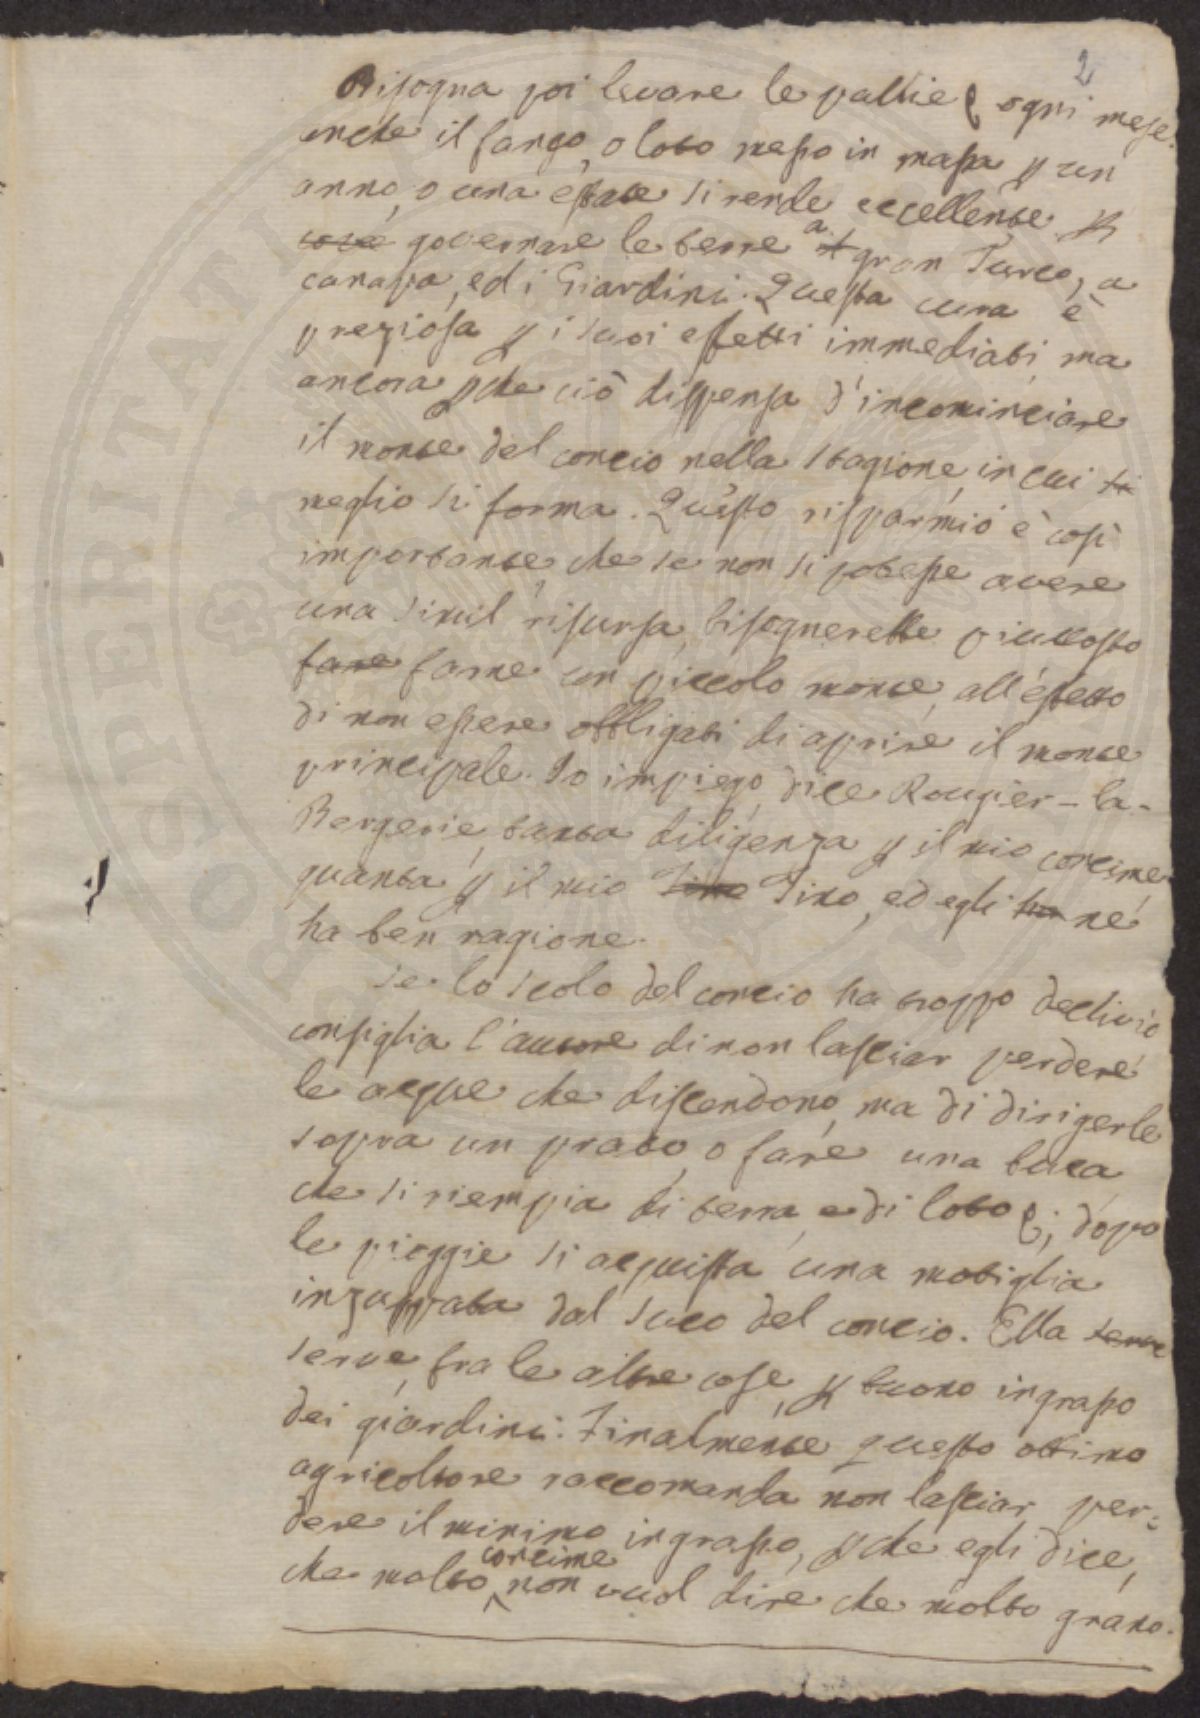 2
Bisogna poi levare le pallie & ogni mese.
anche il fango, o loto messo in massa p un
anno, o una estate si rende eccellente p
cosa governare le terre a t gran Turco, a
canapa, ed i Giardini. Questa cura è
preziosa p i suoi effetti immediati, ma
ancora pche ciò dispensa d'incominciare
il monte del concio nella stagione, in cui si
meglio si forma. Questo risparmio è così
importante, che se non si potesse avere
una simil risursa, bisognerebbe piuttosto
fare farne un piccolo monte, all'effetto
di non essere obbligati di aprire il monte
principale. Io impiego, dice Rougier-la-
Bergerie, tanta diligenza p il mio concime,
quanta p il mio Tino Tino, ed egli ha ne
ha ben ragione.
Se lo scolo del concio ha troppo declivio
consiglia l'autore di non lasciar perdere
le acque che discendono, ma di dirigerle
sopra un prato, o fare una buca
che si riempia di terra, e di loto &; dopo
le pioggie si acquista una motiglia
inzuppata dal suco del concio. Ella serve
serve, fra le altre cose, p buono ingrasso
dei giardini. Finalmente questo ottimo
agricoltore raccomanda non lasciar per=
dere il minimo ingrasso, pche egli dice,
concime
che molto non vuol dire che molto grano.
SPERITATI
PROSPERITATI